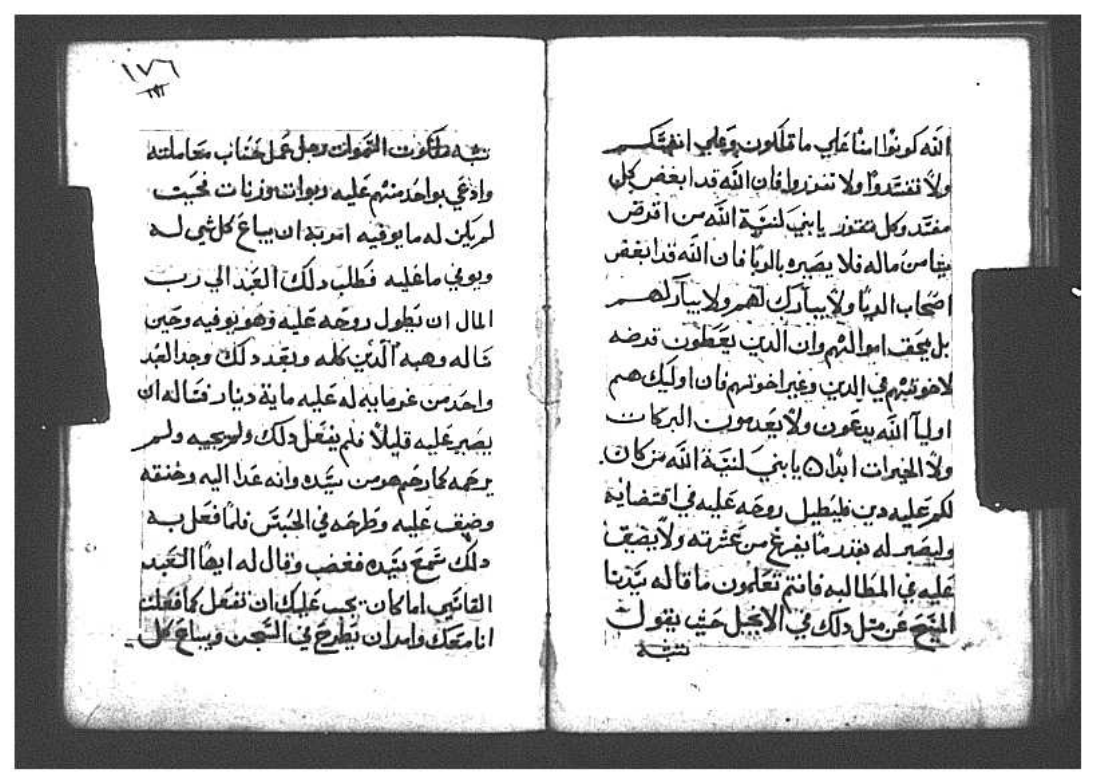 الله كونوا امنا علي ما قلدون وعلي انفسكم
ولا تفتدوا ولا تفرزوا فان الله قد ابغض كل
مفتد وكل مفرز يابني لنية الله من اقرض
يتامن ماله فلا يصيره بالربا فان الله قد ابغض
اصحاب الربا ولا يبارك لهم ولا يبارلهم
بل يمحق اموالهم وان الدين يعطون قرضه
لاخوتهم في الدين وغير اخوتهم فان اوليك هم
اوليآ الله يدعون ولا يعدمون البركات
ولا الخيرات ابدا ٥ يابني لنية الله من كان
لكم عليه دين فليطيل روحه عليه في اقتضايه
وليصبر له بقدر ما يفرغ من عثرته ولا يضيق
عليه في المطالبه فانتم تعلمون ما قاله سيدنا
المسيح عن متل دلك في الانجيل حين يقول
تشبه
١٧٦
تشبه ملكوت السموات رجل عمل حساب معاملته
وادعي بواحد منهم عليه ربوات وزنات فحيت
لم يكن له ما يوفيه امر به ان يباع كل شي له
ويوفي ما عليه فطلب دلك العبد الي رب
المال ان يطول روحه عليه وهو يوفيه وحين
ساله وهبه الدين كله وبعد دلك وجد العبد
واحد من غرمايه له عليه ماية دينار فساله ان
يصبر عليه قليلا فلم يفعل دلك ولم يجيبه ولم
يرحمه كما رحم هو من سيده وانه عدا اليه وخنقه
وضيق عليه وطرحه في الحبس فلما فعل به
دلك سمع سيده فغضب وقال له ايها العبد
القاسي اما كان يجب عليك ان تفعل كما فعلت
انا معك وامر ان يطرح في السجن ويباع كل